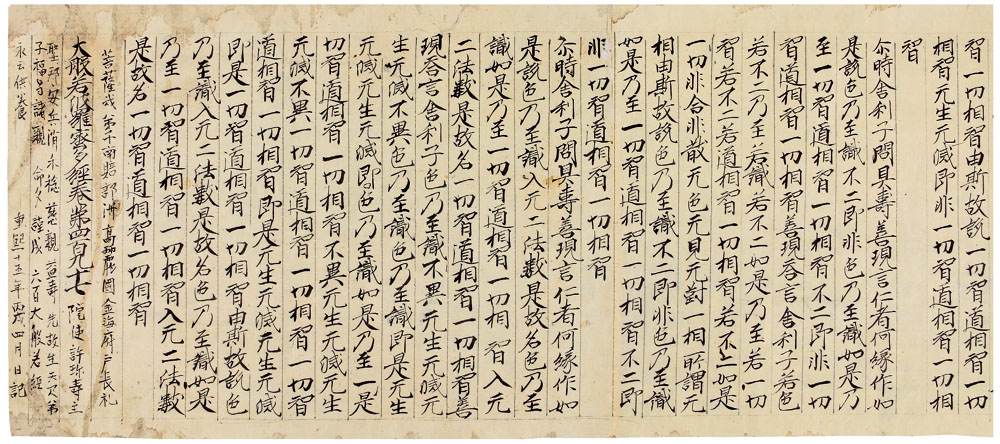 智一切相智由斯故說一切智道相智一切
相智无生滅即非一切智道相智一切相
智
尒時舍利子問具壽善現言仁者何縁作如
是說色乃至識不二即非色乃至識如是乃
至一切智道相智一切相智不二即非一切
智道相智一切相智善現荅言舍利子若色
若不二乃至若識若不二如是乃至若一切
智若不二若道相智一切相智若不二如是
一切非合非散无色无見无對一相所謂无
相由斯故說色乃至識不二即非色乃至識
如是乃至一切智道相智一切相智不二即
非一切智道相智一切相智
尒時舍利子問具壽善現言仁者何縁作如
是說色乃至識入无二法數是故名色乃至
識如是乃至一切智道相智一切相智入无
二法數是故名一切智道相智一切相智善
現荅言舍利子色乃至識不異无生无滅无
生无滅不異色乃至識色乃至識即是无生
无滅无生无滅即是色乃至識如是乃至一
切智道相智一切相智不異无生无滅无生
无滅不異一切智道相智一切相智一切智
道相智一切相智即是无生无滅无生无滅
即是一切智道相智一切相智由斯故說色
乃至識入无二法數是故名色乃至識如是
乃至一切智道相智一切相智入无二法數
是故名一切智道相智一切相智
菩薩戒弟子南贍部洲高麗國金海府戶長礼
大般若波羅蜜多經卷第四百十七 院使許珍壽主
聖 安兵消禾稔慈親益壽先故生天次弟
子福壽諸親 六百大般若經
永云供養 重熙十五年丙戌四月日記